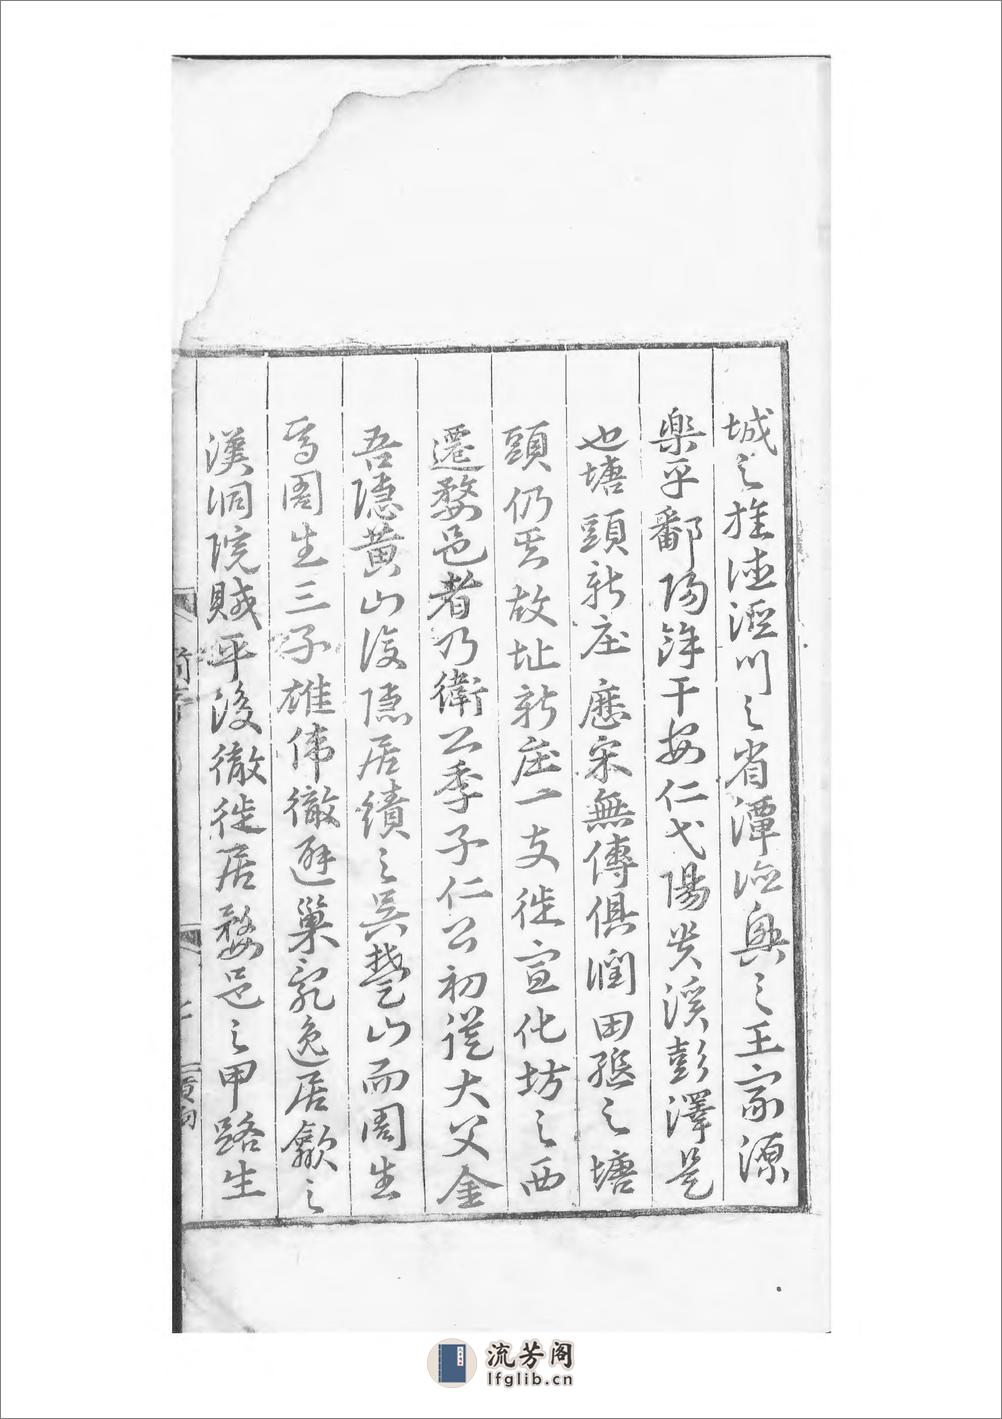 城之旌德涇川之省潭歙與之王家源
樂平鄱陽餘干安仁弋陽貴溪彭澤是
也塘頭新庄歷宋無傳俱潤田孫之塘
頭仍其故址新庄一支徙宣化坊之西
遷婺邑者乃衛公季子仁公初從大父金
吾隱黃山後隱居績之吳楚山而周生
焉周生三子雄偉徹避巢亂逸居歙之
漢洞院賊平後徹徙居婺邑之甲路生
流芳阁
lfglib.cn